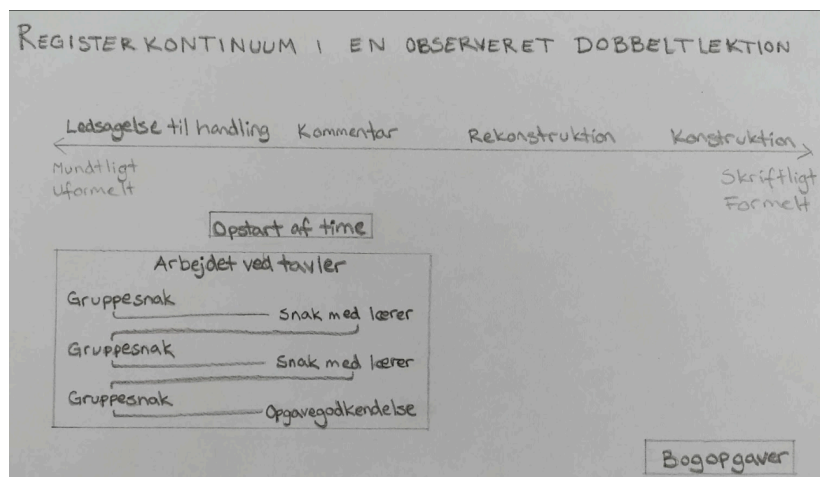 REGISTERKONTINUUM I EN OBSERVERET DOBBELTLEKTION
Ledsagelse til handling Kommentar Rekonstruktion Konstruktion
Mundtligt
Uformelt
Skriftligt
Formelt
Opstart af time
Arbejdet ved tavler
Gruppesnak
Snak med lærer
Gruppesnak
Snak med lærer
Gruppesnak
Opgavegodkendelse
Bogopgaver